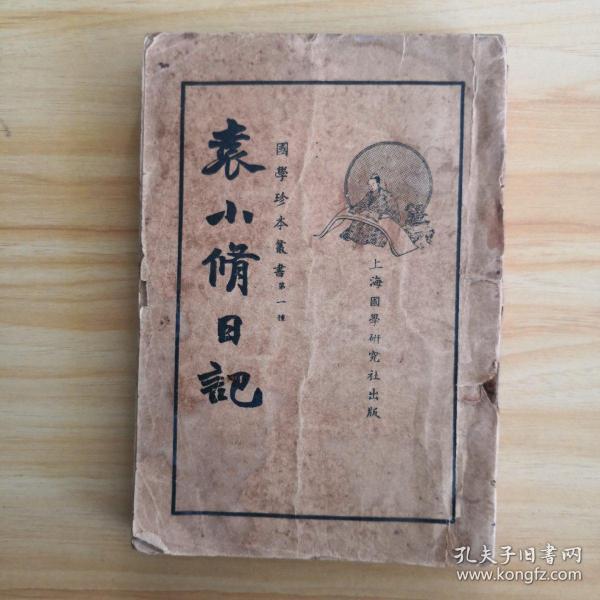 上海國學研究社出版
國學珍本叢書第一種
袁小脩日記
孔夫子旧书网
www.kongfz.com